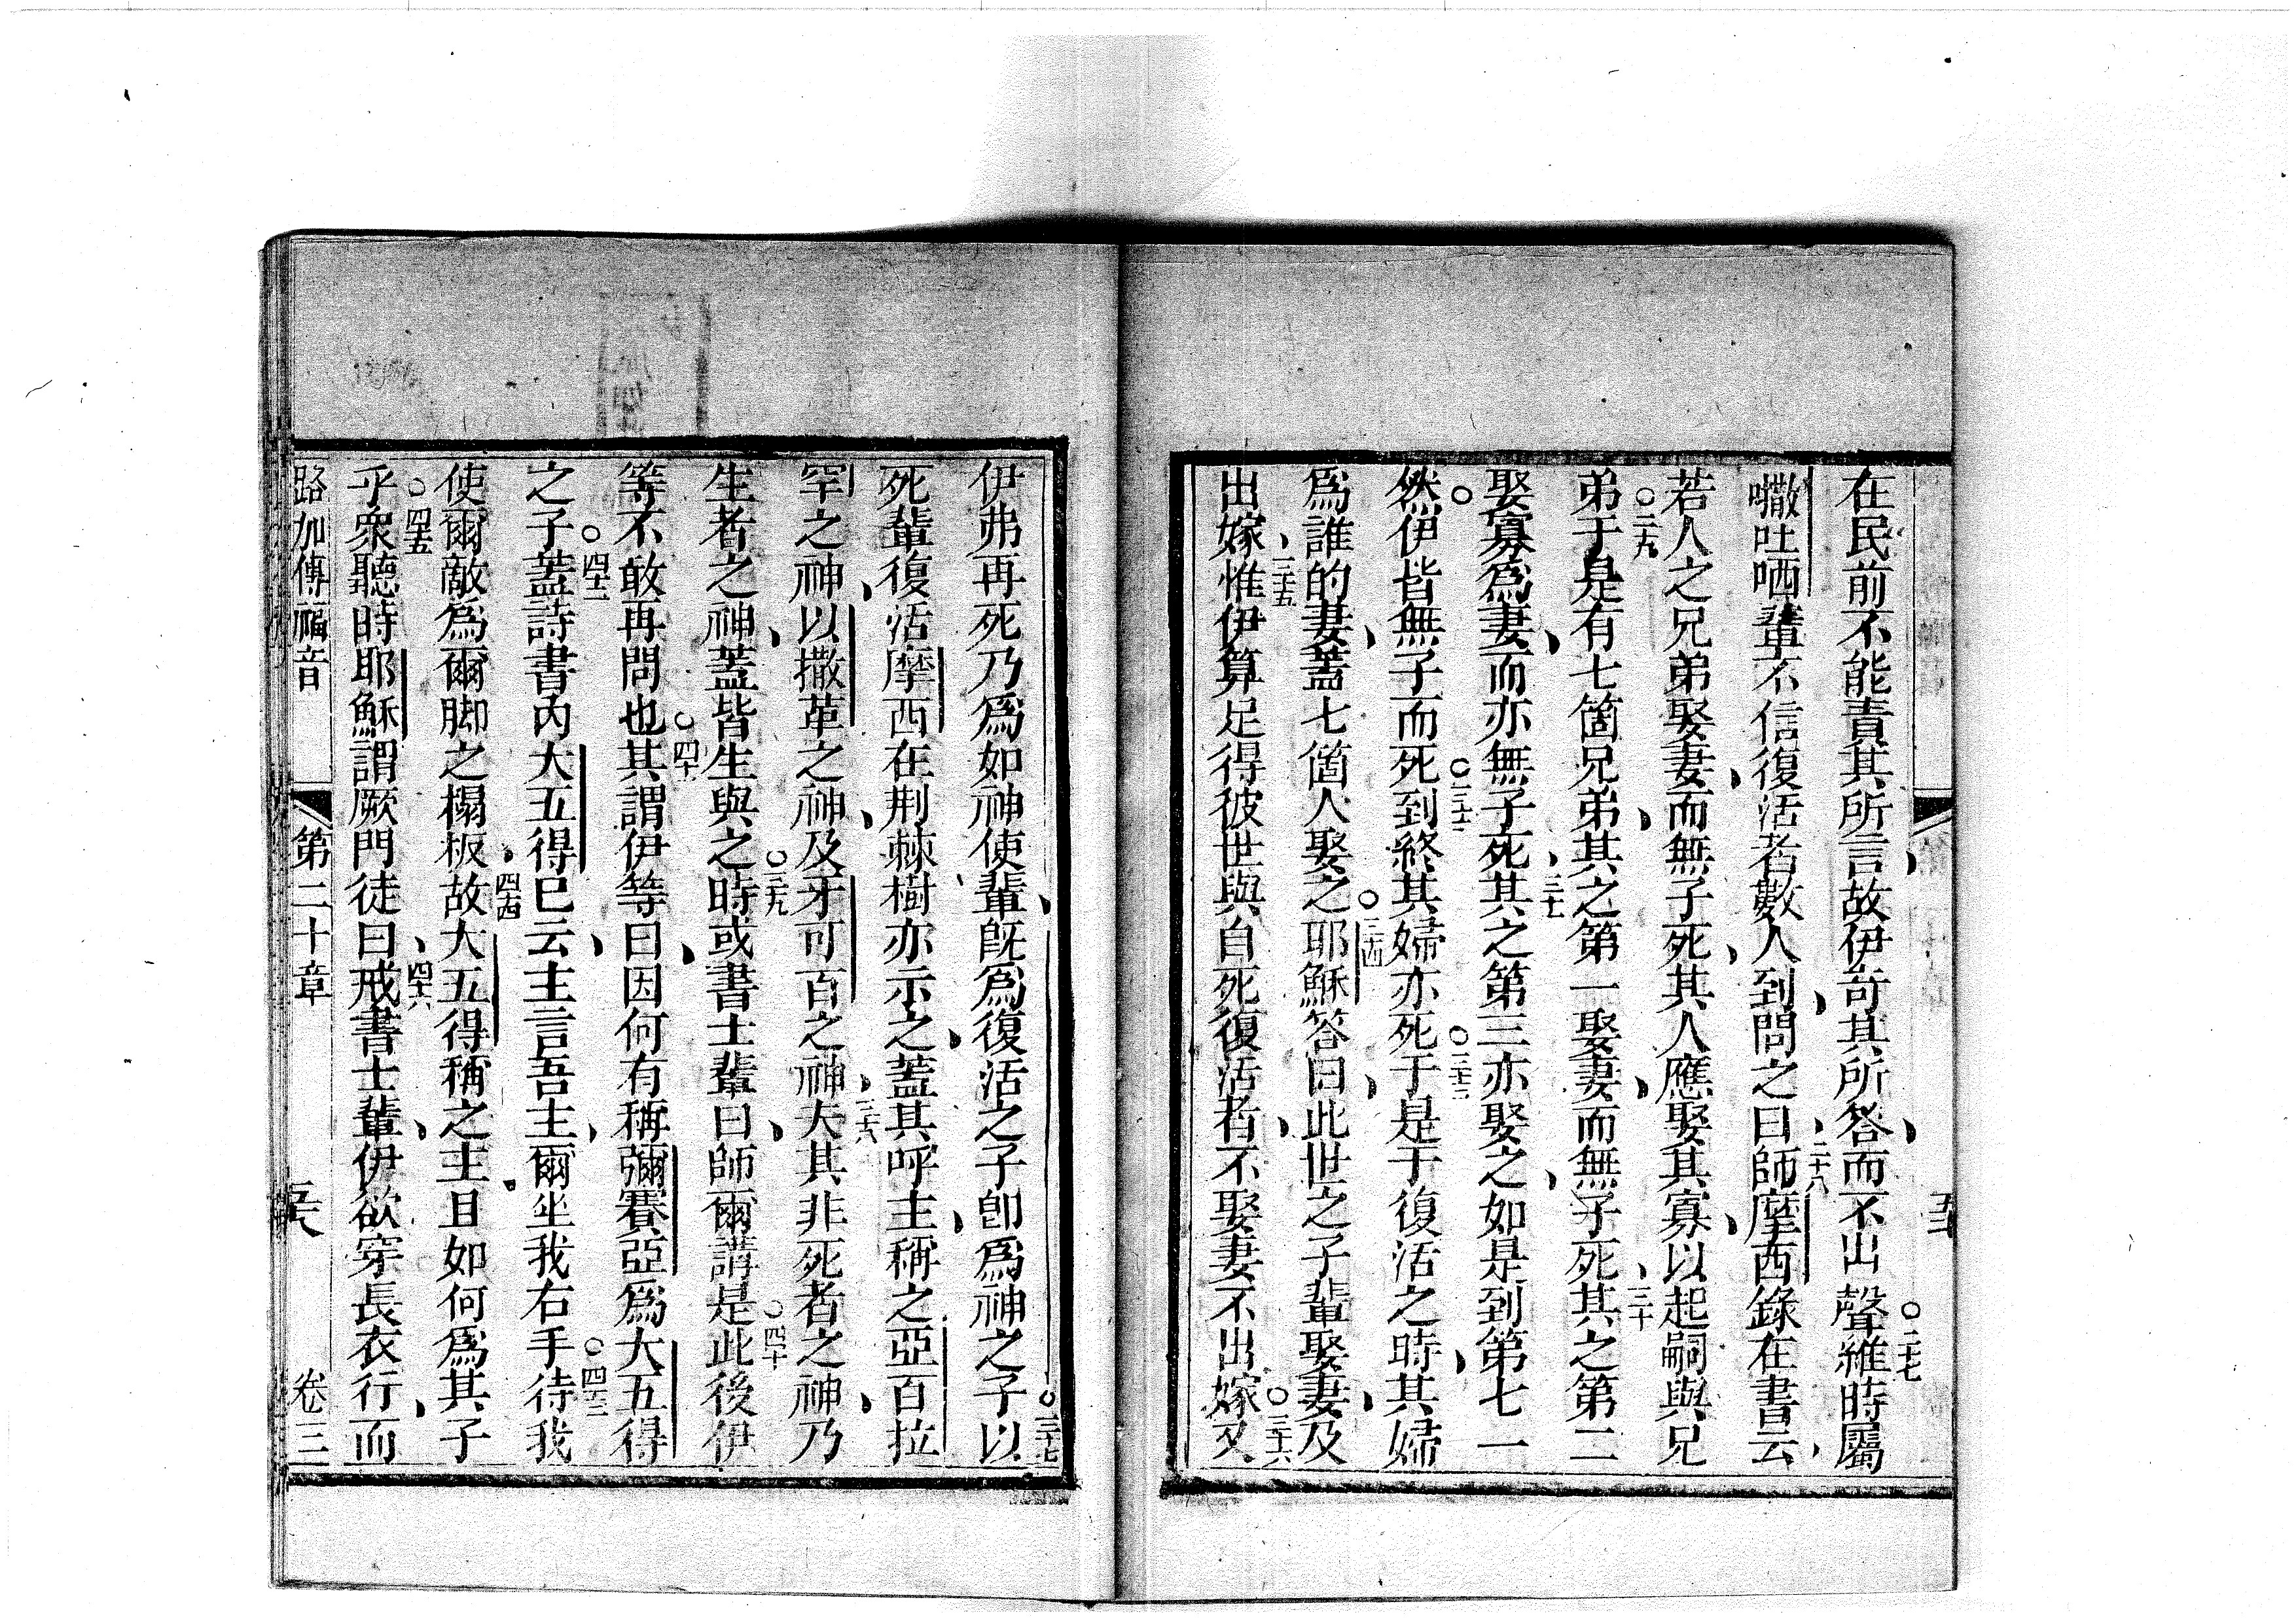 在民前不能責其所言故伊奇其所答而不出聲○二十七維時屬
𠹌吐哂輩不信復活者數人到問之曰二十八師摩西錄在書云
若人之兄弟娶妻而無子死其人應娶其寡以起嗣與兄
弟○二十九于是有七箇兄弟其之第一娶妻而無子死三十其之第二
娶寡爲妻而亦無子死三十一其之第三亦娶之如是到第七一
然○伊皆無子而死○三十二到終其婦亦死○三十三于是于復活之時其婦
爲誰的妻蓋七箇人娶之○三十四耶穌答曰此世之子輩娶妻及
出嫁三十五惟伊算足得彼世與自死復活者不娶妻不出嫁○三十六又
伊弗再死乃爲如神使輩既爲復活之子卽爲神之子○三十七以
死輩復活摩西在荆棘樹亦示之蓋其呼主稱之亞百拉
罕之神以撒革之神及牙可百之神三十八夫其非死者之神乃
生者之神蓋皆生與之○三十九時或書士輩曰師爾講是○四十此後伊
等不敢再問也○四十一其謂伊等曰因何有稱彌賽亞爲大五得
之子○四十二蓋詩書內大五得已云主言吾主爾坐我右手○四十三待我
使爾敵爲爾脚之櫈板四十四故大五得稱之主且如何爲其子
乎○四十五衆聽時耶穌謂厥門徒曰四十六戒書士輩伊欲穿長衣行而
路加傳福音 第二十章 卷三